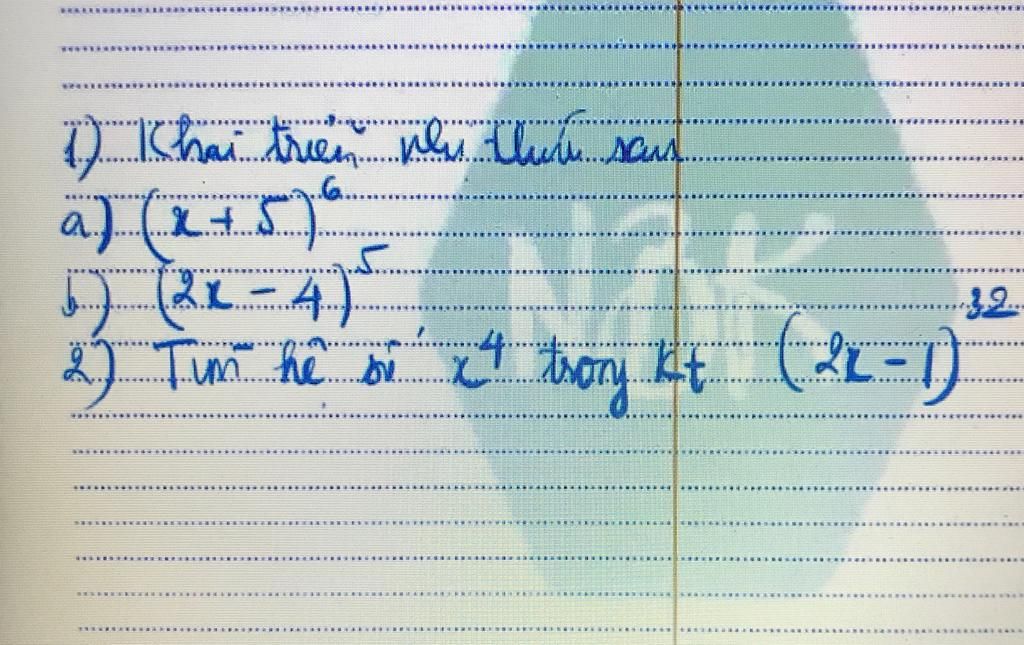 1) Khai triển nhị thức sau
a) (x + 5)^6
b) (2x - 4)^5
2) Tìm hệ số x^4 trong kt (2x - 1)^32
NaK